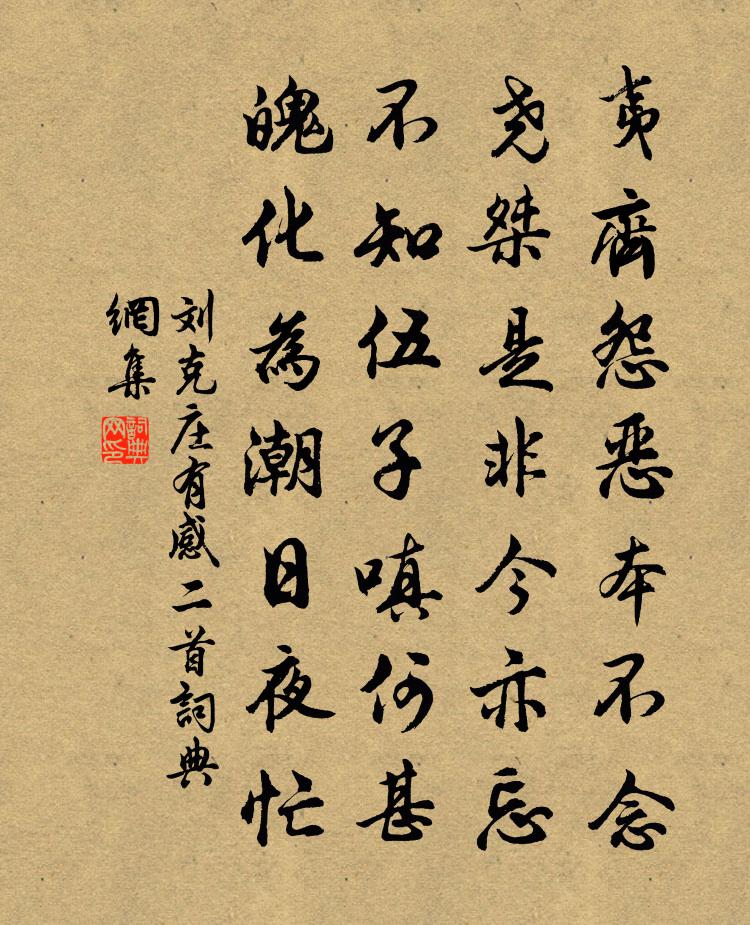 夷齊怨恶本不念
尧桀是非今亦忘
不知伍子嗔何甚
魄化為潮日夜忙
刘克庄有感二首詞典
網集
詞典
网印